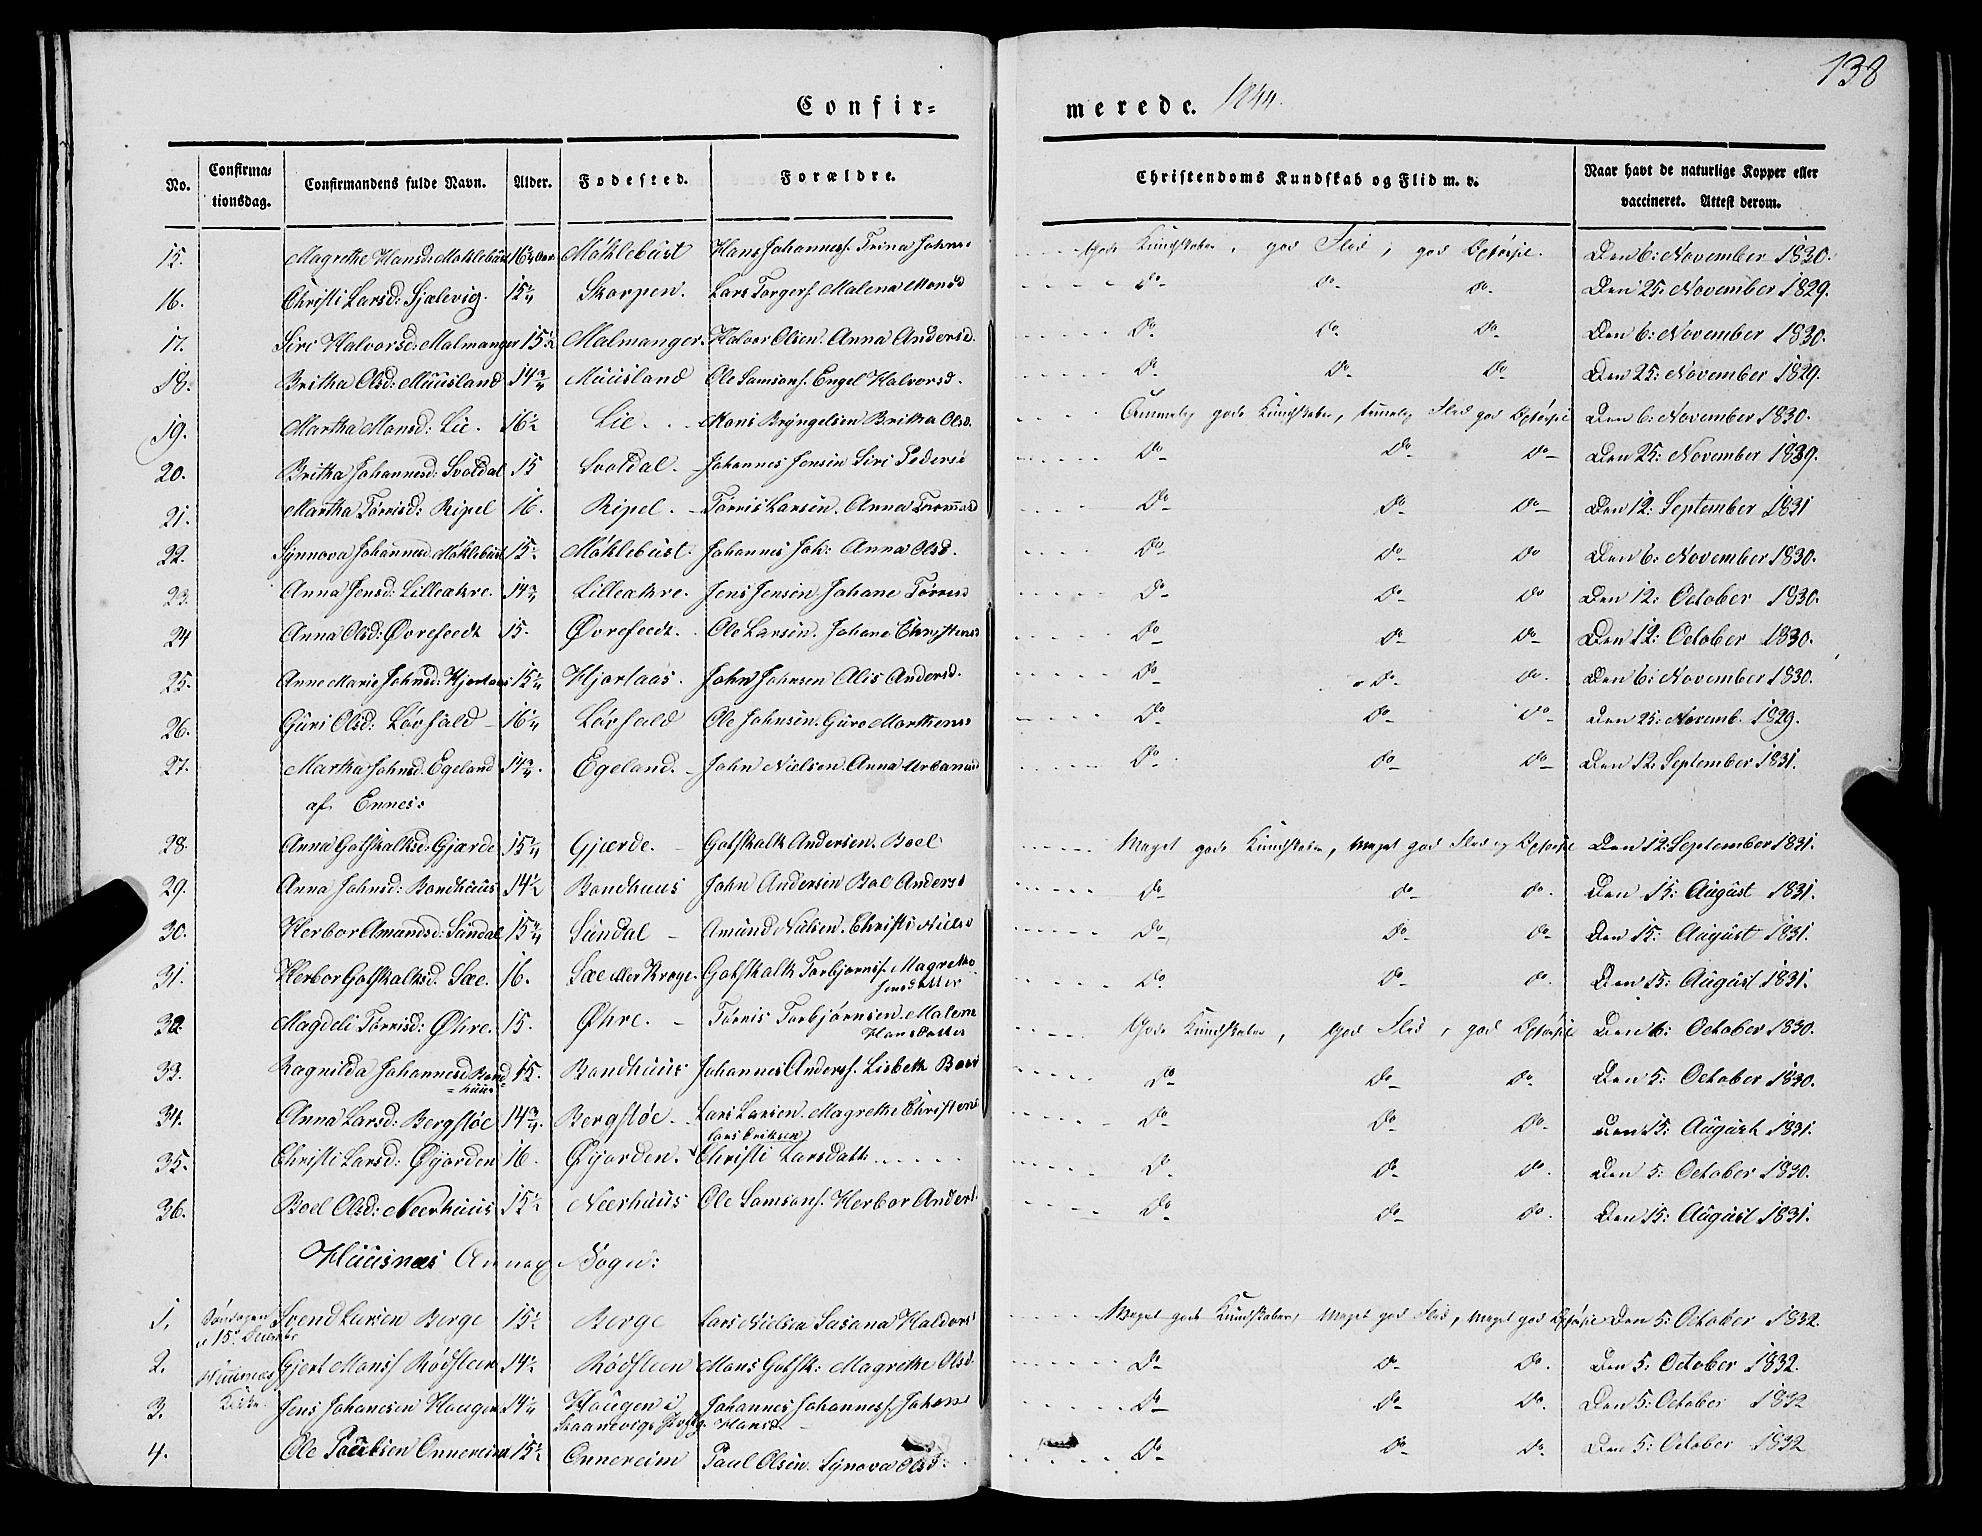 138
Confir=
merede. 1844.
No. Confirma=tionsdag. Confirmandens fulde Navn. Alder. Fødested. Forældre. Christendoms Kundskab og Flid m. v. Naar havt de naturlige Kopper eller vaccineret. Attest derom.
15. Magrethe Hansd: Møhlebüst 16 Møhlebüst Hans Johannesf. Trina Johns Gode Kundskaber, god Flid, god Opførsel. Den 6: November 1830.
16. Christi Larsd: Sjælevig. 15 Skorpen. Lars Torgersf. Malena Monsd do do do Den 25. November 1829.
17. Siri Halvorsd: Malmanger 15 Malmanger. Halvor Olsen. Anna Andersd. do do do Den 6: November 1830.
18. Britha Olsd: Müüsland 14¾ Müüsland Ole Samsonsf. Engel Halvorsd. do do do Den 25: November 1829.
19. Martha Monsd: Lie. 16½ Lie. Mons Bryngelsen Britha Olsd. Temmelig gode Kundskaber, temmelig Flid god Opførsel Den 6: November 1830.
20. Britha Johannesd: Svoldal 15 Svoldal. Johannes Jensen Siri Peders do do do Den 25: November 1829.
21. Martha Tørrisd: Ripel 16. Ripel. Tørris Larsen. Anna Tommasd do do do Den 12: September 1831
22. Synnova Johannesd. Møhlebüst 15½ Møhlebüst. Johannes Joh: Anna Olsd. do do do Den 6: November 1830.
23. Anna Jensd: Lilleakre. 14¾ Lilleakre. Jens Jensen Johane Tørresd do do do Den 12: October 1830.
24 Anna Olsd: Øvrefeedt 15. Øvrefeedt. Ole Larsen. Johane Christens do do do Den 12: October 1830.
25. Anne Marie Johnsd: Hjortaas 15 Hjortaas. John Johnsen Alis Andersd. do do do Den 6: November 1830.
26. Güri Olsd: Løvfald 16¼ Løvfald Ole Johnsen. Güro Marthens do do do Den 25: Novemb. 1829.
27. Martha Johnsd. Egeland af Ennes: 14¾. Egeland. John Nielsen. Anna Urbansd do do do Den 12. September 1831.
28. Anna Gotskalksd: Gjærde 15 Gjerde. Gotskalk Andersen. Boel Meget gode Kundskaber, meget god Flid og Opførsel Den 12 September 1831.
29. Anna Johnsd: Bondhüüs 14½ Bondhuus John Andersen Boel Anders do do do. Den 15: August 1831.
30. Herbor Amundsd: Sündal 15¾ Sündal Amünd Nielsen. Christi Niels do do do Den 15: August 1831.
31. Herbor Gotskalksd. Sæe. 16. Sæe eller Kroge. Gotskalk Torbjørnsf. Magrethe Jensdatter do do do. Den 15: August 1831.
32. Magdeli Tørrisd: Øhre. 15. Øhre. Tørris Torbjørnsen. Malene Hansdatter Gode Kundskaber, god Flid, god Opførsel Den 6: October 1830.
33. Ragnilda Johannesd Bond=hüüs 15. Bondhüüs Johannes Andersf. Lisbeth do do do Den 5: October 1830.
34. Anna Larsd: Bergstøe 14¾. Bergstøe. Lars Larsen. Magrethe Christens do do do. Den 15: August 1831.
35. Christi Larsd: Øyjorden 16. Øyjorden. Lars Eriksen Christi Larsdatt. do do do. Den 5: October 1830.
36. Boel Olsd: Neerhüüs 15½ Neerhüüs Ole Samsonsf. Herbor Anders do do do. Den 15: August 1831.
Hüüsnæs Annex Sogn:
1. Søndagen d 15de Svend Larsen Berge 15½ Berge Lars Nielsen Susana Haldors Meget gode Kundskaber, meget god Flid, meget god Opførsel Den 5: October 1832.
2. Hüüsnæs Gjert Monsf Rødsteen 14½ Rødsteen Mons Gotsk: Magrethe Olsd. do do do. Den 5: October 1832.
3. Kirke. Jens Johanesen Haugen 14¼ Haugen i Skaanevigs Præstg. Johannes Johannesf. Johane Hansd. do do do. Den 5: October 1832
4. Ole Paulsen Onnereim 15½ Onnereim Paul Olsen. Synova Olsd: do do do Den 5: October 1832